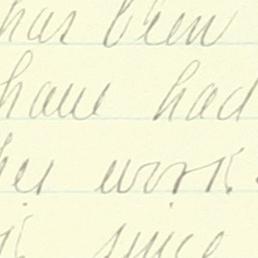 has been
have had
her work
since